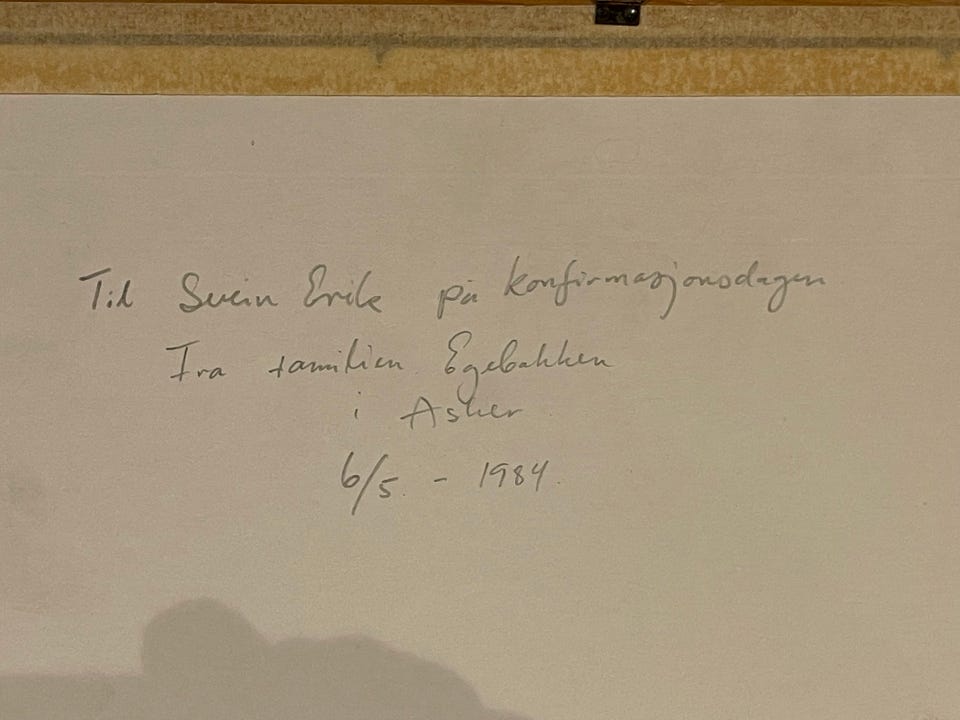 Til Svein Erik på konfirmasjonsdagen
Fra familien Egebakken
i Asker
6/5. - 1984.